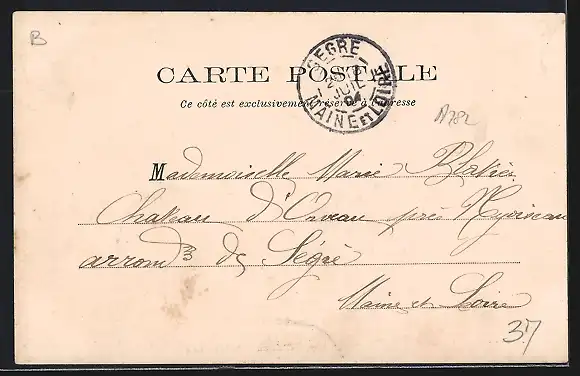 B
SEGRÉ
MAINE ET LOIRE
JUIL
04
CARTE POSTALE
Ce côté est exclusivement réservé à l'adresse
A782
Mademoiselle Marie
Chateau d'Orveau près Nyoiseau
arrond de Ségré
Maine et Loire
37